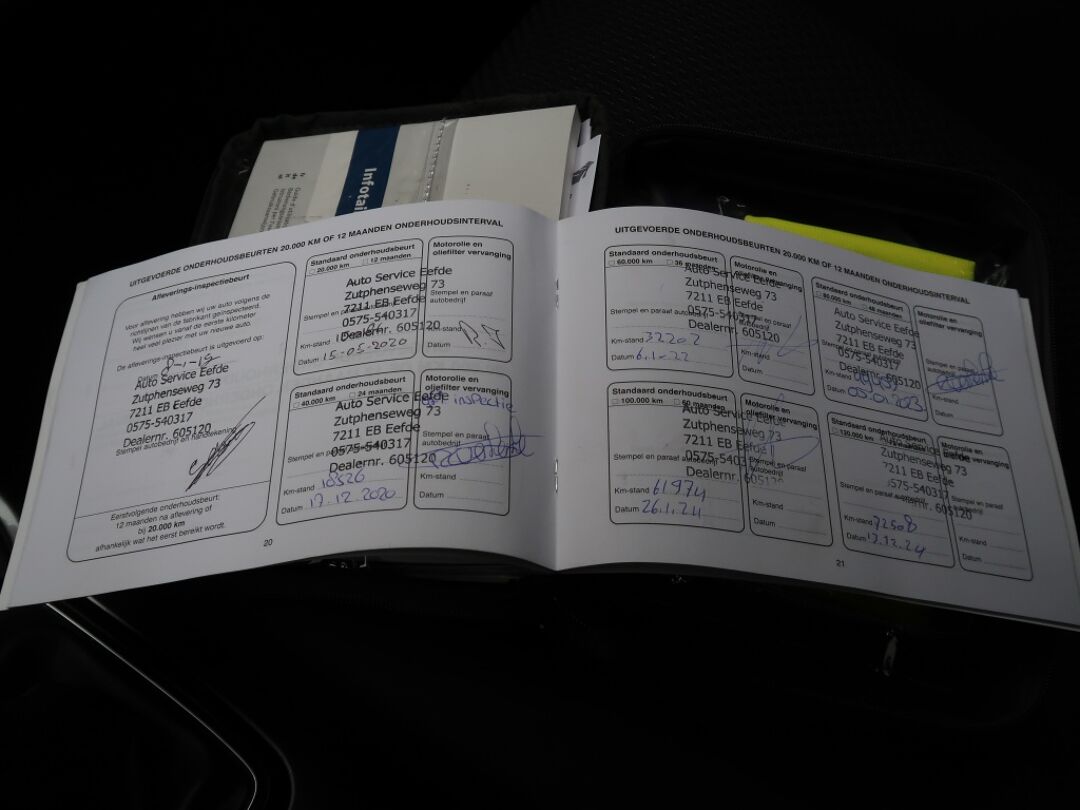 Infotai
UITGEVOERDE ONDERHOUDSBEURTEN 20.000 KM OF 12 MAANDEN ONDERHOUDSINTERVAL
Afleverings-inspectiebeurt
Voor aflevering hebben wij uw auto volgens de
richtlijnen van de fabrikant geïnspecteerd.
Wij wensen u vanaf de eerste kilometer
heel veel plezier met uw nieuwe auto.
De afleverings-inspectiebeurt is uitgevoerd op:
Datum
Auto Service Eefde
Zutphenseweg 73
7211 EB Eefde
0575-540317
Dealernr. 605120
Stempel autobedrijf en handtekening
Eerstvolgende onderhoudsbeurt:
12 maanden na aflevering of
bij 20.000 km
afhankelijk wat het eerst bereikt wordt.
Standaard onderhoudsbeurt
20.000 km 12 maanden
Auto Service Eefde
Zutphenseweg 73
7211 EB Eefde
0575-540317
Dealernr. 605120
Stempel en paraaf autobedrijf
Km-stand
Datum 15-05-2020
Motorolie en
oliefilter vervanging
Stempel en paraaf
autobedrijf
Km-stand
Datum
Standaard onderhoudsbeurt
40.000 km 24 maanden
Auto Service Eefde
Zutphenseweg 73
7211 EB Eefde
0575-540317
Dealernr. 605120
Stempel en paraaf autobedrijf
Km-stand 18526
Datum 17.12.2020
Motorolie en
oliefilter vervanging
inspectie
Stempel en paraaf
autobedrijf
Km-stand
Datum
20
UITGEVOERDE ONDERHOUDSBEURTEN 20.000 KM OF 12 MAANDEN ONDERHOUDSINTERVAL
Standaard onderhoudsbeurt
60.000 km 36 maanden
Auto Service Eefde
Zutphenseweg 73
7211 EB Eefde
0575-540317
Dealernr. 605120
Stempel en paraaf autobedrijf
Km-stand 32202
Datum 6.1.22
Motorolie en
oliefilter vervanging
Stempel en paraaf
autobedrijf
Km-stand
Datum
Standaard onderhoudsbeurt
80.000 km 48 maanden
Auto Service Eefde
Zutphenseweg 73
7211 EB Eefde
0575-540317
Dealernr. 605120
Km-stand
Datum 05.01.2023
Motorolie en
oliefilter vervanging
Stempel en paraaf
autobedrijf
Km-stand
Datum
Standaard onderhoudsbeurt
100.000 km 60 maanden
Auto Service Eefde
Zutphenseweg 73
7211 EB Eefde
0575-540317
Dealernr. 605120
Stempel en paraaf autobedrijf
Km-stand 61974
Datum 26.1.24
Motorolie en
oliefilter vervanging
Stempel en paraaf
autobedrijf
Km-stand
Datum
Standaard onderhoudsbeurt
120.000 km
Auto Service Eefde
Zutphenseweg 73
7211 EB Eefde
0575-540317
Dealernr. 605120
Stempel en paraaf autobedrijf
Km-stand 72508
Datum 13.12.24
Motorolie en
oliefilter vervanging
Stempel en paraaf
autobedrijf
Km-stand
Datum
21